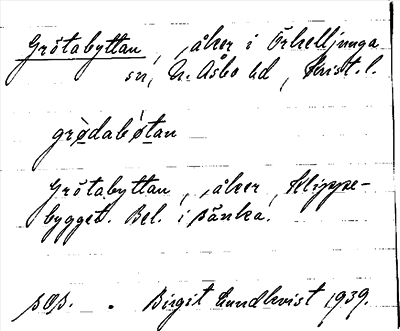 Grötabyttan, åker i Örkelljunga
sn, N. Åsbo hd, Krist. l.
grødabøtan
Grötabyttan, åker, Klippe-
bygget. Bel. i sänka.
Birgit Lundkvist 1939.